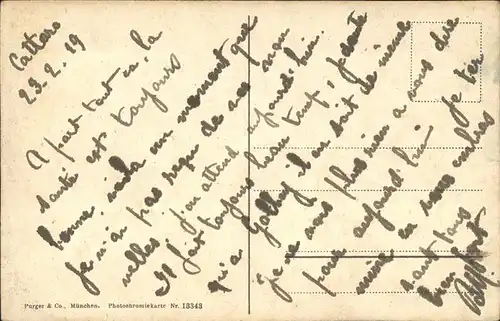 Cattaro
23.2.19
A part tout ça, la
santé est toujours
bonne, voila un moment que
je n'ai pas reçu de vos nou
velles, j'en attend aujourd'hui.
Il fait toujours beau temps, je doute
qu'a Gallay il en soit de même
Je ne vois plus rien a vous dire
pour aujourd'hui je ter
mine en vous embras
sant tous
bien fort
Purger & Co., München. Photochromiekarte Nr. 13343